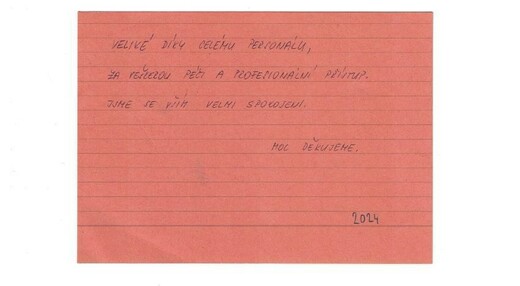 VELIKÉ DÍKY CELÉMU PERSONÁLU,
ZA VEŠKEROU PÉČI A PROFESIONÁLNÍ PŘÍSTUP.
JSME SE VŠÍM VELMI SPOKOJENI.
MOC DĚKUJEME.
2024